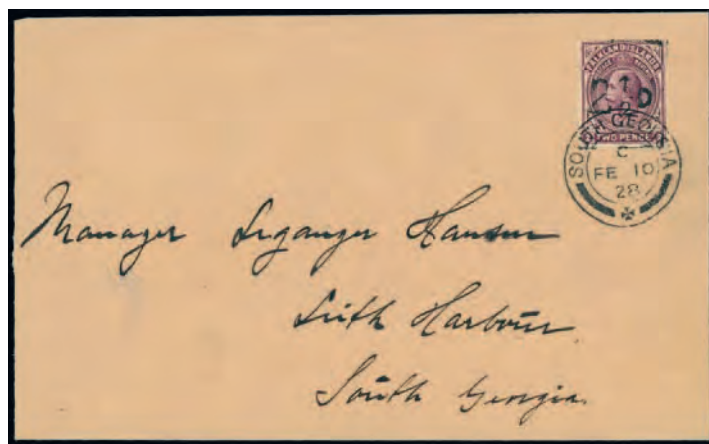 FALKLAND ISLANDS
2½D
TWO PENCE
SOUTH GEORGIA
C
FE 10
28
Manager Leganger Hansen
Leith Harbour
South Georgia.